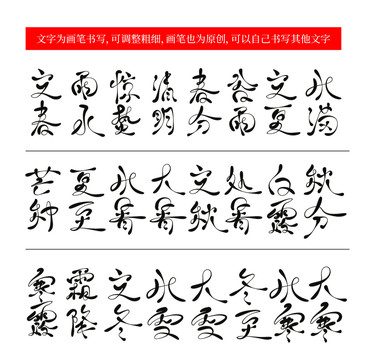 文字为画笔书写,可调整粗细,画笔也为原创,可以自己书写其他文字
立春
雨水
惊蛰
清明
春分
谷雨
立夏
小满
芒种
夏至
小暑
大暑
立秋
处暑
白露
秋分
寒露
霜降
立冬
小雪
大雪
冬至
小寒
大寒